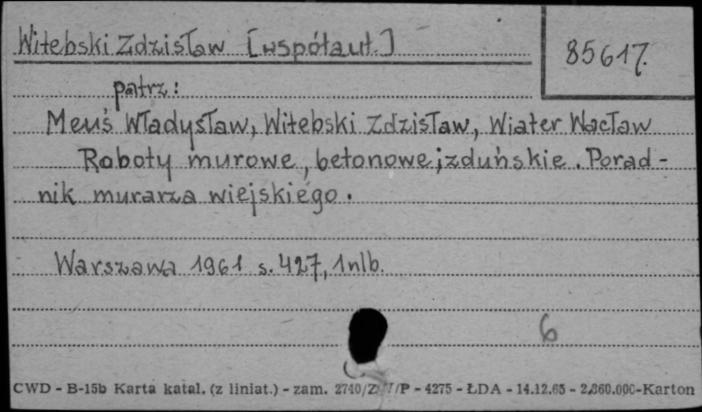 Witebski Zdzisław [współaut.]
85617.
patrz:
Meuś Władysław, Witebski Zdzisław, Wiater Wacław
Roboty murowe, betonowe i zduńskie. Porad-
nik murarza wiejskiego.
Warszawa 1961 s. 427, 1 nlb.
6
CWD - B-15b Karta katal. (z liniat.) - zam. 2740/Z /P - 4275 - ŁDA - 14.12.65 - 2,860.000-Karton